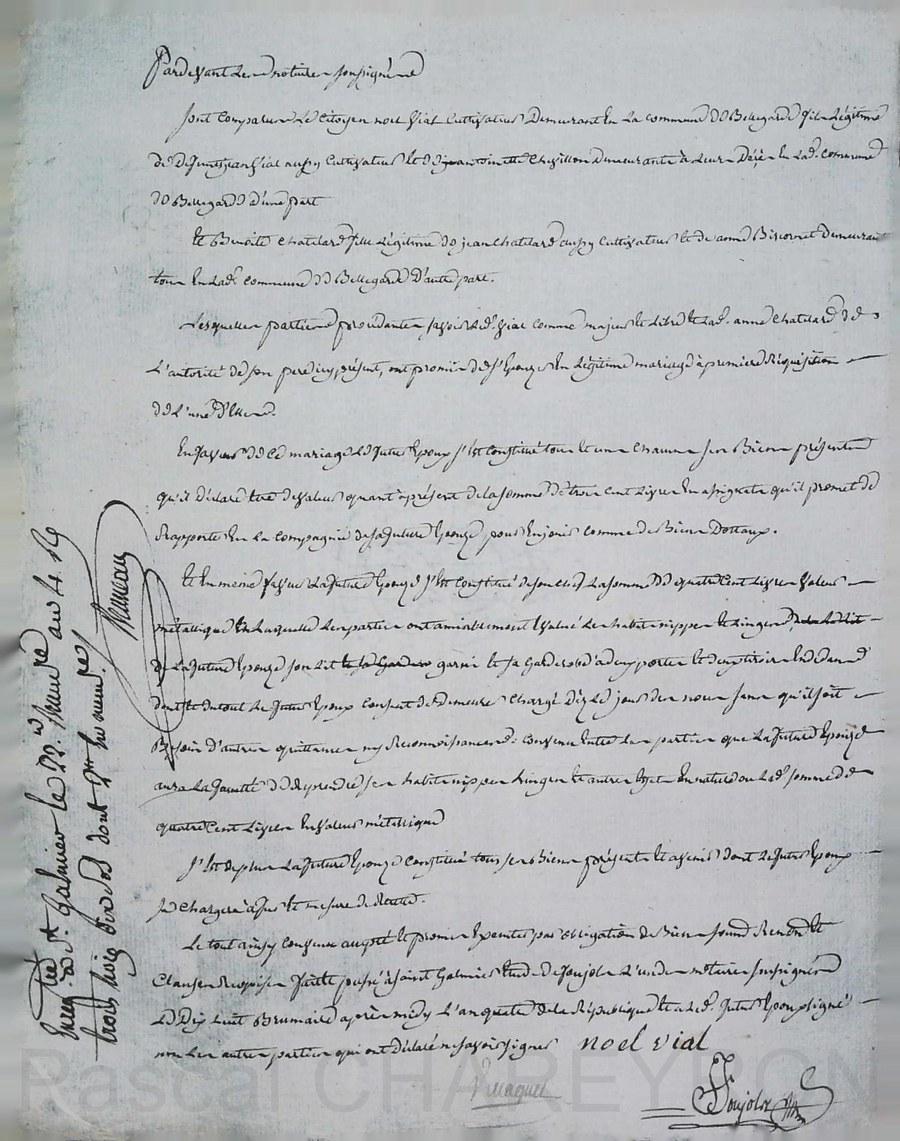 Pardevant les notaires soussignés
sont comparus le Citoyen noel vial Cultivateur Demeurant en La commune de Bellegarde fils Légitime
de Défunt jean vial aussy Cultivateur et de jeantoinette Chevillon Demeurante à Leur Déjà en lad. commune
de Bellegarde d'une part
Et Benoite Chatelard fille Légitime de jean Chatelard aussy Cultivateur et de anne Demeurant
tous en lade. Commune de Bellegarde D'autre part.
Lesquelles parties procédantes savoir led. vial comme majeur et libre et lad. anne Chatelard de
L'autorité de son pere icy présent, ont promis de s'Epouzer en Légitime mariage à premiere Réquisition
de L'une d'Elles.
En faveur de ce mariage Le futur Epoux s'est Constitué tous et un chacuns ses Biens présents
qu'il déclare être de valeur quant à présent de la somme de trois cent Livres En assignats qu'il promet de
Rapporter En La Compagnie de sa future Epouze pour En jouir comme de Biens Dottaux.
Et En même faveur La future Epouze s'est Constitué de son chef La somme de quatre Cent Livres valeur
métallique En Laquelle Les parties ont amiablement Evalué Les habits nippes et Linges
de La future Epouze son Lit garni et sa Garderobe
dont et du tout Le futur Epoux consent de Demeurer Chargé Dèz Le jour des noces sans qu'il soit
Besoin d'autres quittances ny Reconnoissances. Convenu Entre Les parties que La future Epouze
aura La faculté de Reprendre ses habits nippes Linges et autres Effets En nature ou Lade. somme de
quatre Cent Livres En valeur métallique
s'est de plus La future Epouze Constitué tous ses Biens présents et avenir dont Le futur Epoux
se Chargera à fur et mesure de Recette.
Le tout ainsy Convenu accepté et promis Executer par obligation de Biens
Clauses Requises fait et passé à Saint Galmier Etude de Soujols L'un des notaires soussignés
Le Dix huit Brumaire après midy L'an quatre de la République et a Led. futur Epoux signé
non Les autres parties qui ont déclaré ne savoir signer noel vial
Soujols
Enregistré
à St. Galmier le 22
trois
Pascal CHAREYRON